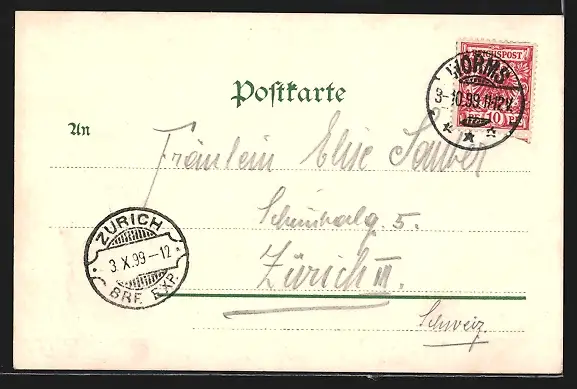 Postkarte
REICHSPOST
WORMS
3-10.99.11-12V.
10
An
Fräulein Elise
5.
Zürich III.
Schweiz.
ZÜRICH
3.X.99-12
BRF. EXP.